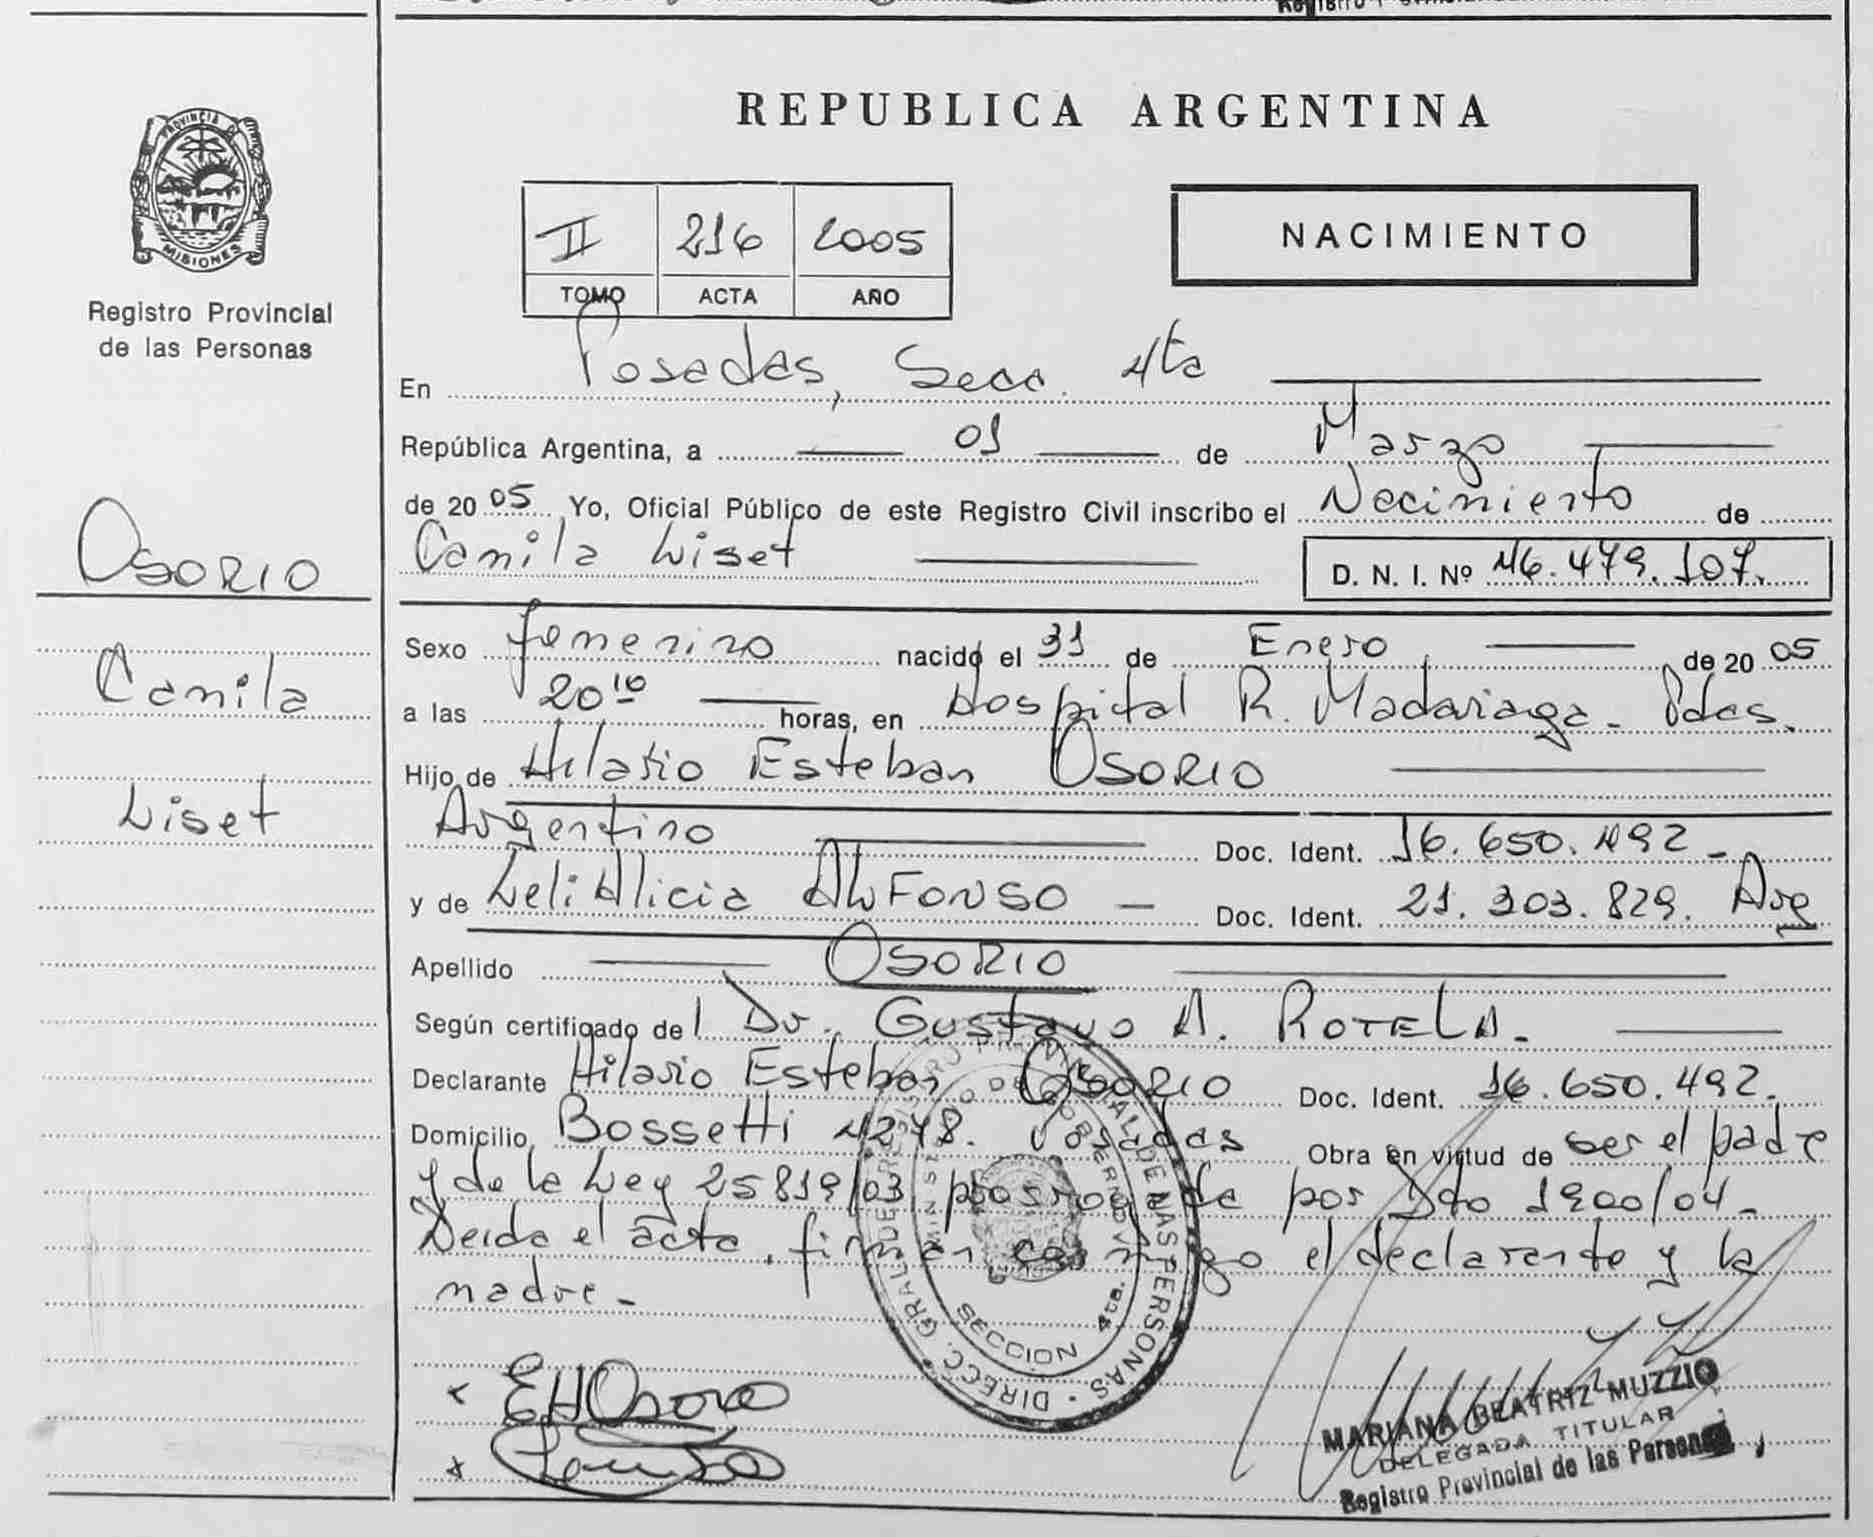 REPUBLICA ARGENTINA
PROVINCIA D
MISIONES
Registro Provincial
de las Personas
II 216 2005
TOMO ACTA AÑO
NACIMIENTO
En Posadas, Secc. 4ta
República Argentina, a 01 de Marzo
de 2005 Yo, Oficial Público de este Registro Civil inscribo el Nacimiento de
Camila Liset D. N. I. Nº 46.479.107.
OSORIO
Camila
Liset
Sexo femenino nacido el 31 de Enero de 2005
a las 20 10 horas, en Hospital R. Madariaga - Pdas.
Hijo de Hilario Esteban OSORIO
Argentino Doc. Ident. 16.650.492 -
y de Leli Alicia ALFONSO - Doc. Ident. 21.303.829. Arg
Apellido OSORIO
Según certificado del Dr. Gustavo A. ROTELA.
Declarante Hilario Esteban OSORIO Doc. Ident. 16.650.492.
Domicilio Bossetti 4278. Posadas Obra en virtud de ser el padre
y de la Ley 25819/03 prorrogada por Dto 1900/04 -
Leida el acta, firman conmigo el declarante y la
madre -
DIRECC. GRAL. DE REGISTRO PROVINCIAL DE LAS PERSONAS
MINISTERIO DE GOBIERNO
SECCION 4ta.
x EHOsorio
x
MARIANA BEATRIZ MUZZIO
DELEGADA TITULAR
Registro Provincial de las Personas